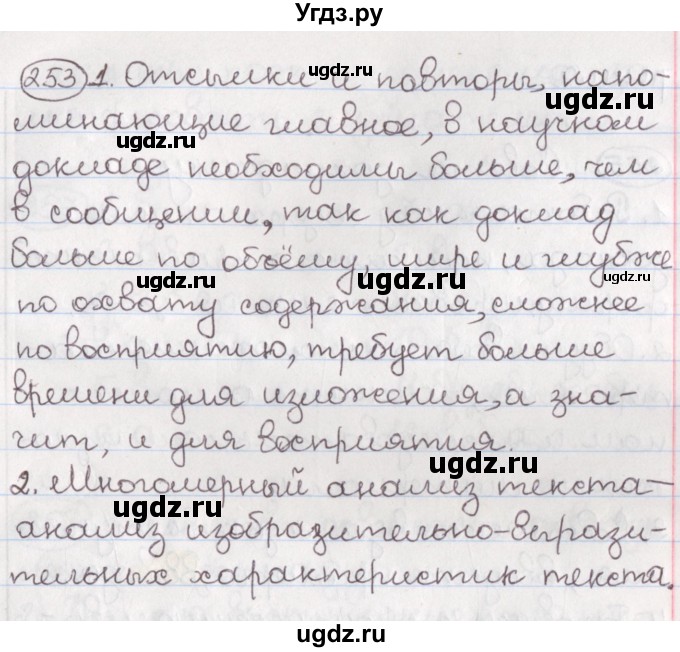 Угдз.ру
253 1. Отсылки и повторы, напо-
минающие главное, в научном
докладе необходимы больше, чем
в сообщении, так как доклад
больше по объёму, шире и глубже
по охвату содержания, сложнее
по восприятию, требует больше
времени для изложения, а зна-
чит, и для восприятия.
2. Многомерный анализ текста-
анализ изобразительно-вырази-
тельных характеристик текста.
ugdz.ru
ugdz.ru
ugdz.ru
ugdz.ru
ugdz.ru
ugdz.ru
ugdz.ru
ugdz.ru
ugdz.ru
ugdz.ru
ugdz.ru
ugdz.ru